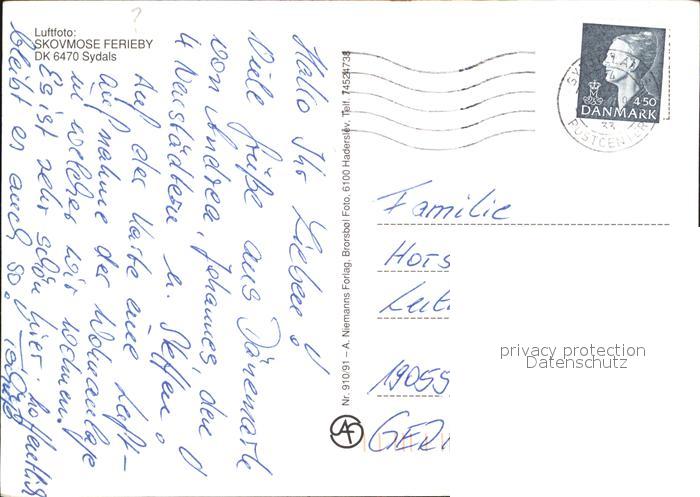 Luftfoto:
SKOVMOSE FERIEBY
DK 6470 Sydals
?
Hallo Ihr Lieben!
Viele Grüße aus Dänemark
von Andrea, Johannes, den
4 Neustädtern u. Steffen!
Auf der Karte eine Luft-
aufnahme der Wohnanlage
in welcher wir wohnen.
Es ist sehr schön hier. hoffentlich
bleibt es auch so!
Nr. 910/91 – A. Niemanns Forlag, Brorsbøl Foto, 6100 Haderslev, Telf. 74524738
4.50
DANMARK
POSTCENTER
33
Familie
Hors
19055
GER
privacy protection
Datenschutz